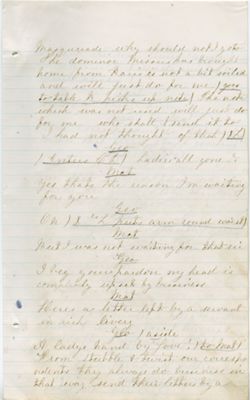 Masquerade why should not I go?
The domino Missus has brought
home from Paris is not a bit soiled
and will just do for me (goes
to table & picks up note) The note
which was not used will just do
for me who shall I send it to
I had not thought of that
Geo
(Enters) Ladies all gone?
Mat
Yes thats the reason I'm waiting
for you
Geo
Oh (puts arm round waist)
Mat
But I was not waiting for that sir
Geo
I beg your pardon my head is
completely upset by business
Mat
Heres a letter left by a servant
in rich livery
Geo (aside
A ladys hand by Jove! (to Mat)
From Stubble & Twist our corresp
ondents. They always do business in
that way, send their letters by a